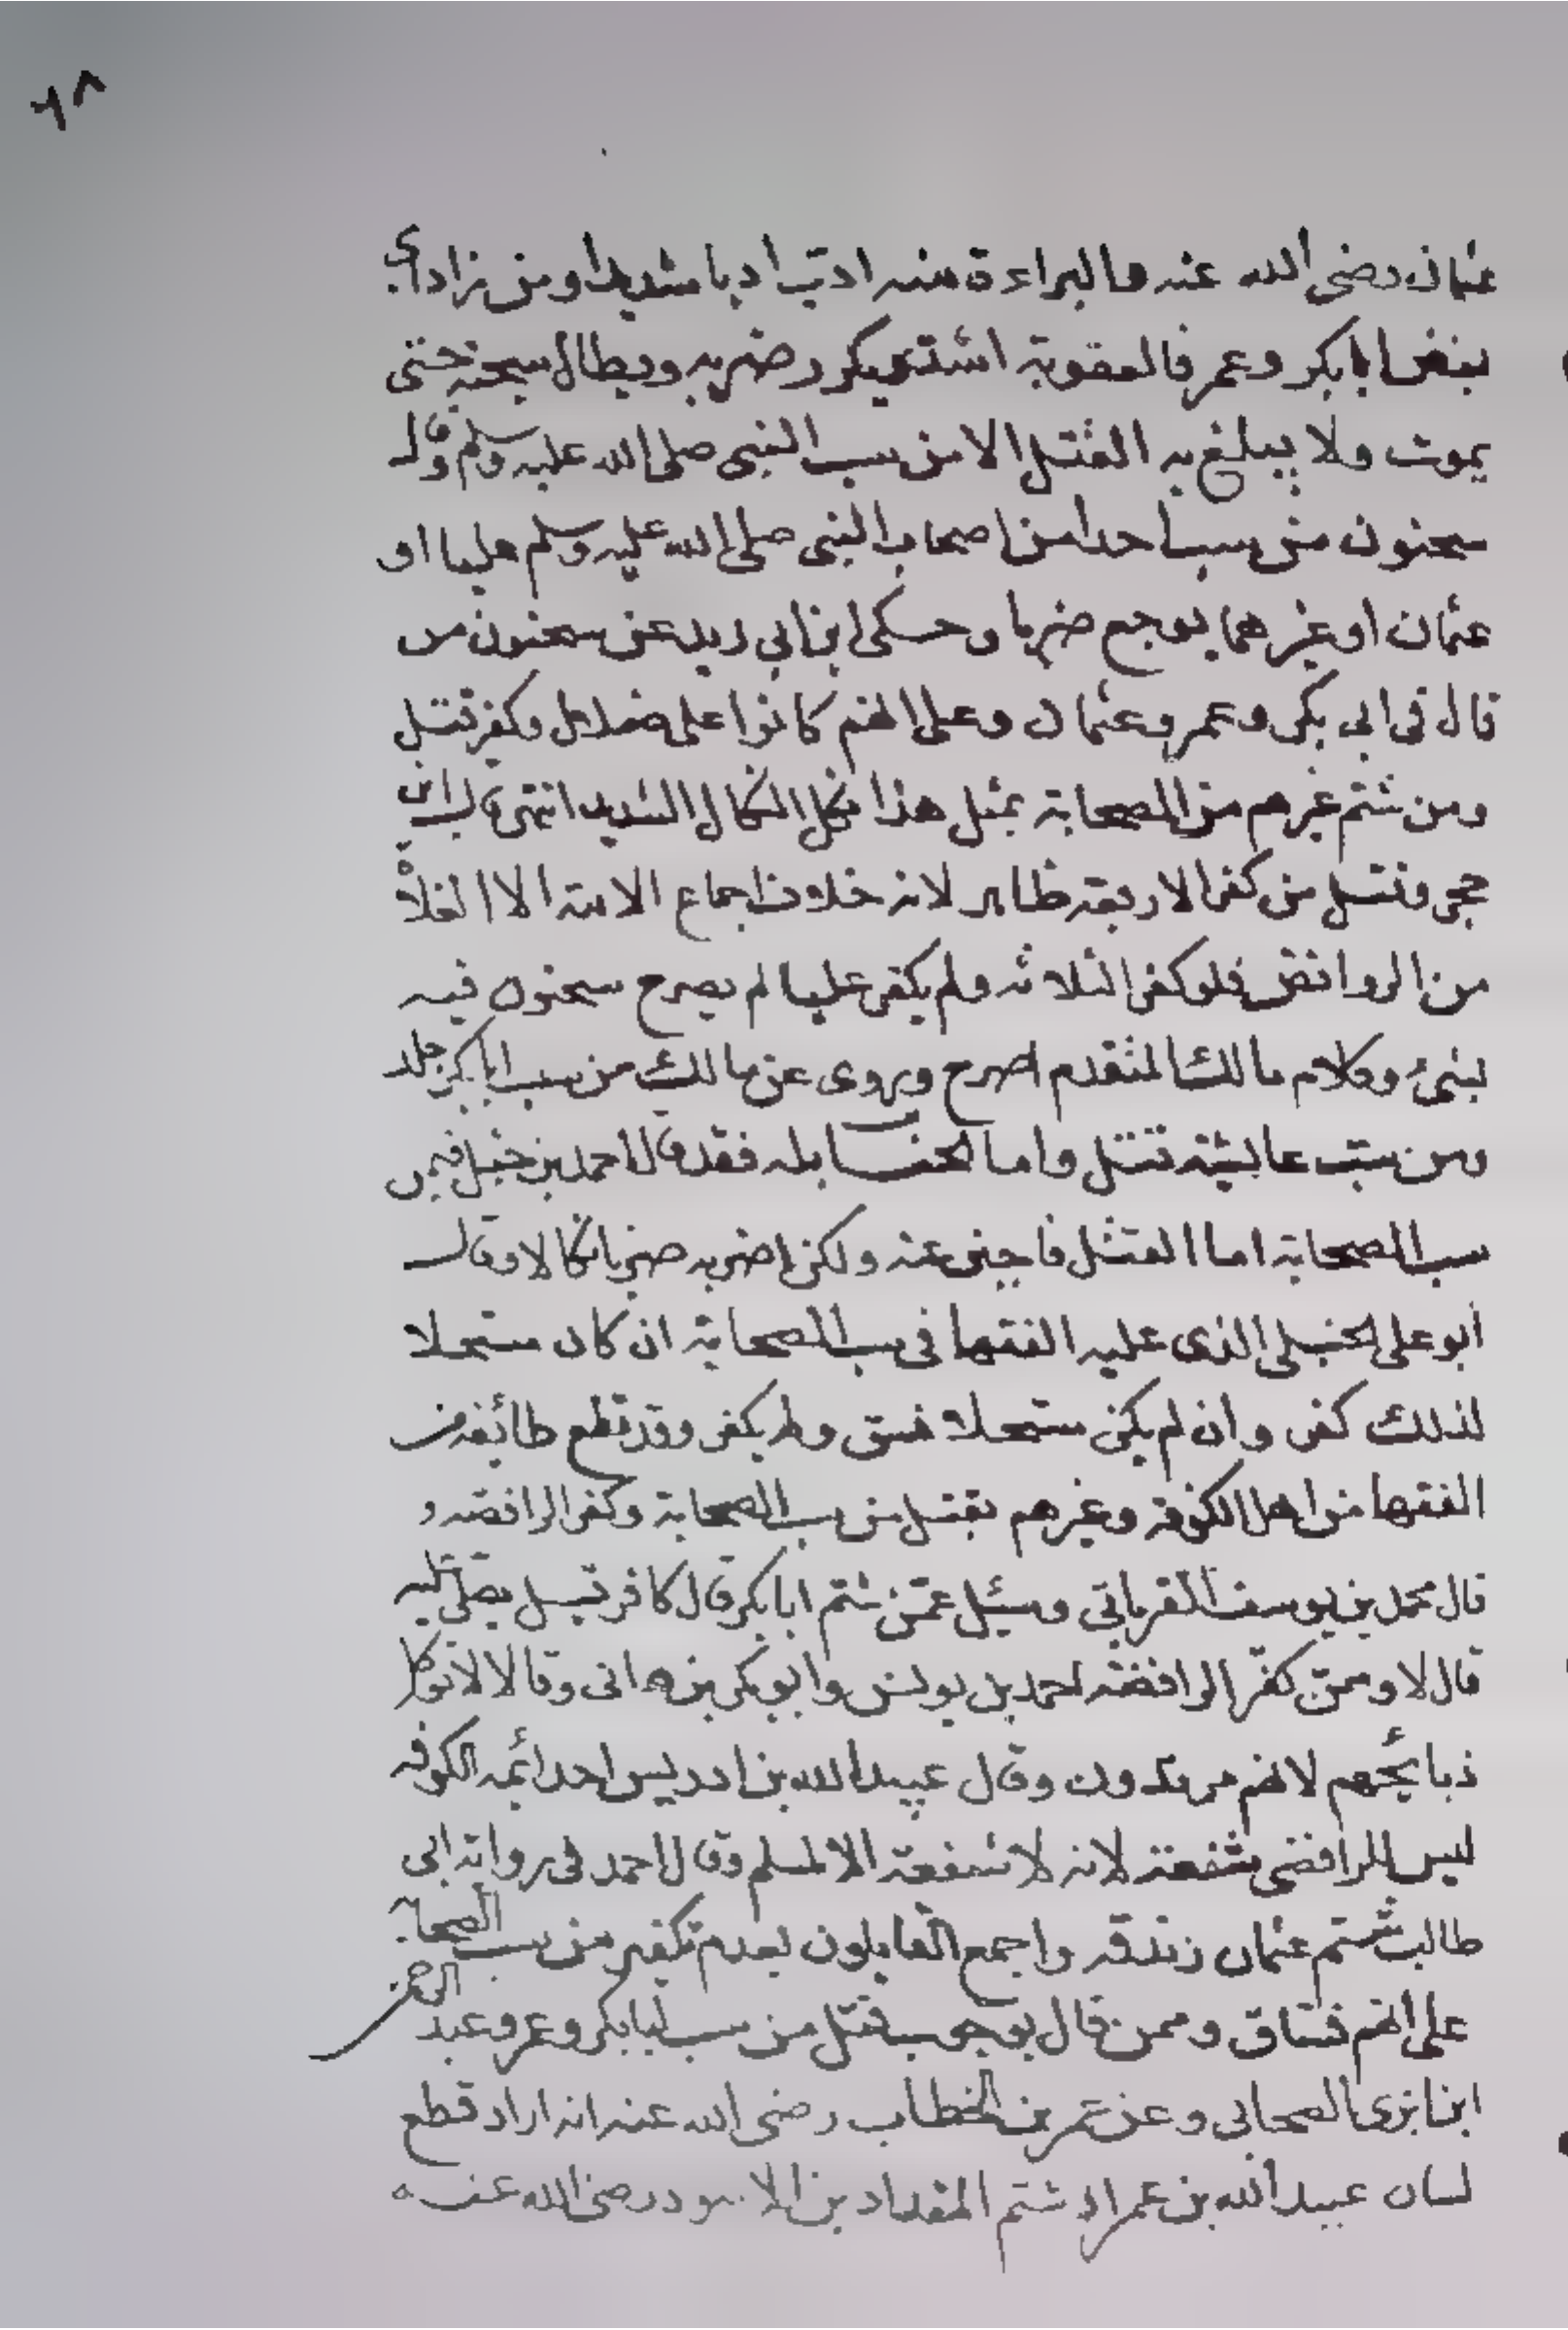 ٦٨
عثمان رضى الله عنه والبراءة منه ادب ادبا شديدا ومن زاد الى
بغض ابا بكر وعمر فالعقوبة اشد ويكرر ضربه ويطال سجنه حتى
يموت ولا يبلغ به القتل الا من سب النبى صلى الله عليه وسلم وقال
سحنون من سب احدا من اصحاب النبى صلى الله عليه وسلم عليا او
عثمان او غيرهما يوجع ضربا وحكى ابن ابي زيد عن سحنون من
قال في ابي بكر وعمر وعثمان وعلى انهم كانوا على ضلال وكفر قتل
ومن شتم غيرهم من الصحابة بمثل هذا نكل النكال الشديد انتهى قال ابن
حجر وقتل من كفر الاربعة ظاهر لانه خلاف اجماع الامة الا الغلاة
من الروافض فلو كفر الثلاثه ولم يكفر عليا لم يصرح سحنون فيه
بشئ وكلام مالك المتقدم اصرح وروى عن مالك من سب ابا بكر جلد
ومن سب عايشة قتل واما الحنابله فقد قال احمد بن حنبل فيمن
سب الصحابة اما القتل فاجبن عنه ولكن اضربه ضربا نكالا وقال
ابو على الحنبلى الذى عليه الفقها فى سب الصحابة ان كان مستحلا
لذلك كفر وان لم يكن مستحلا فسق ولم يكفر وقد قطع طائفة من
الفقها من اهل الكوفة وغيرهم بقتل من سب الصحابة وكفر الرافضه و
قال محمد بن يوسف الفريابي وسئل عمن شتم ابا بكر قال كافر قيل يصلى عليه
قال لا وممن كفر الرافضه احمد بن يونس وابو بكر بن هانى وقالا لا تؤكل
ذبائحهم لانهم مرتدون وقال عبيد الله بن ادريس احد ائمه الكوفه
ليس للرافضى شفعة لانه لا شفعة الا لمسلم وقال احمد في رواية ابى
طالب شتم عثمان زندقه واجمع القايلون بعدم تكفير من سب الصحابة
على انهم فساق وممن قال بوجوب قتل من سب ابا بكر وعمر وعبد الرحمن
ابن ابزى الصحابي وعن عمر بن الخطاب رضى الله عنه انه اراد قطع
لسان عبيد الله بن عمر اذ شتم المقداد بن الاسود رضى الله عنه